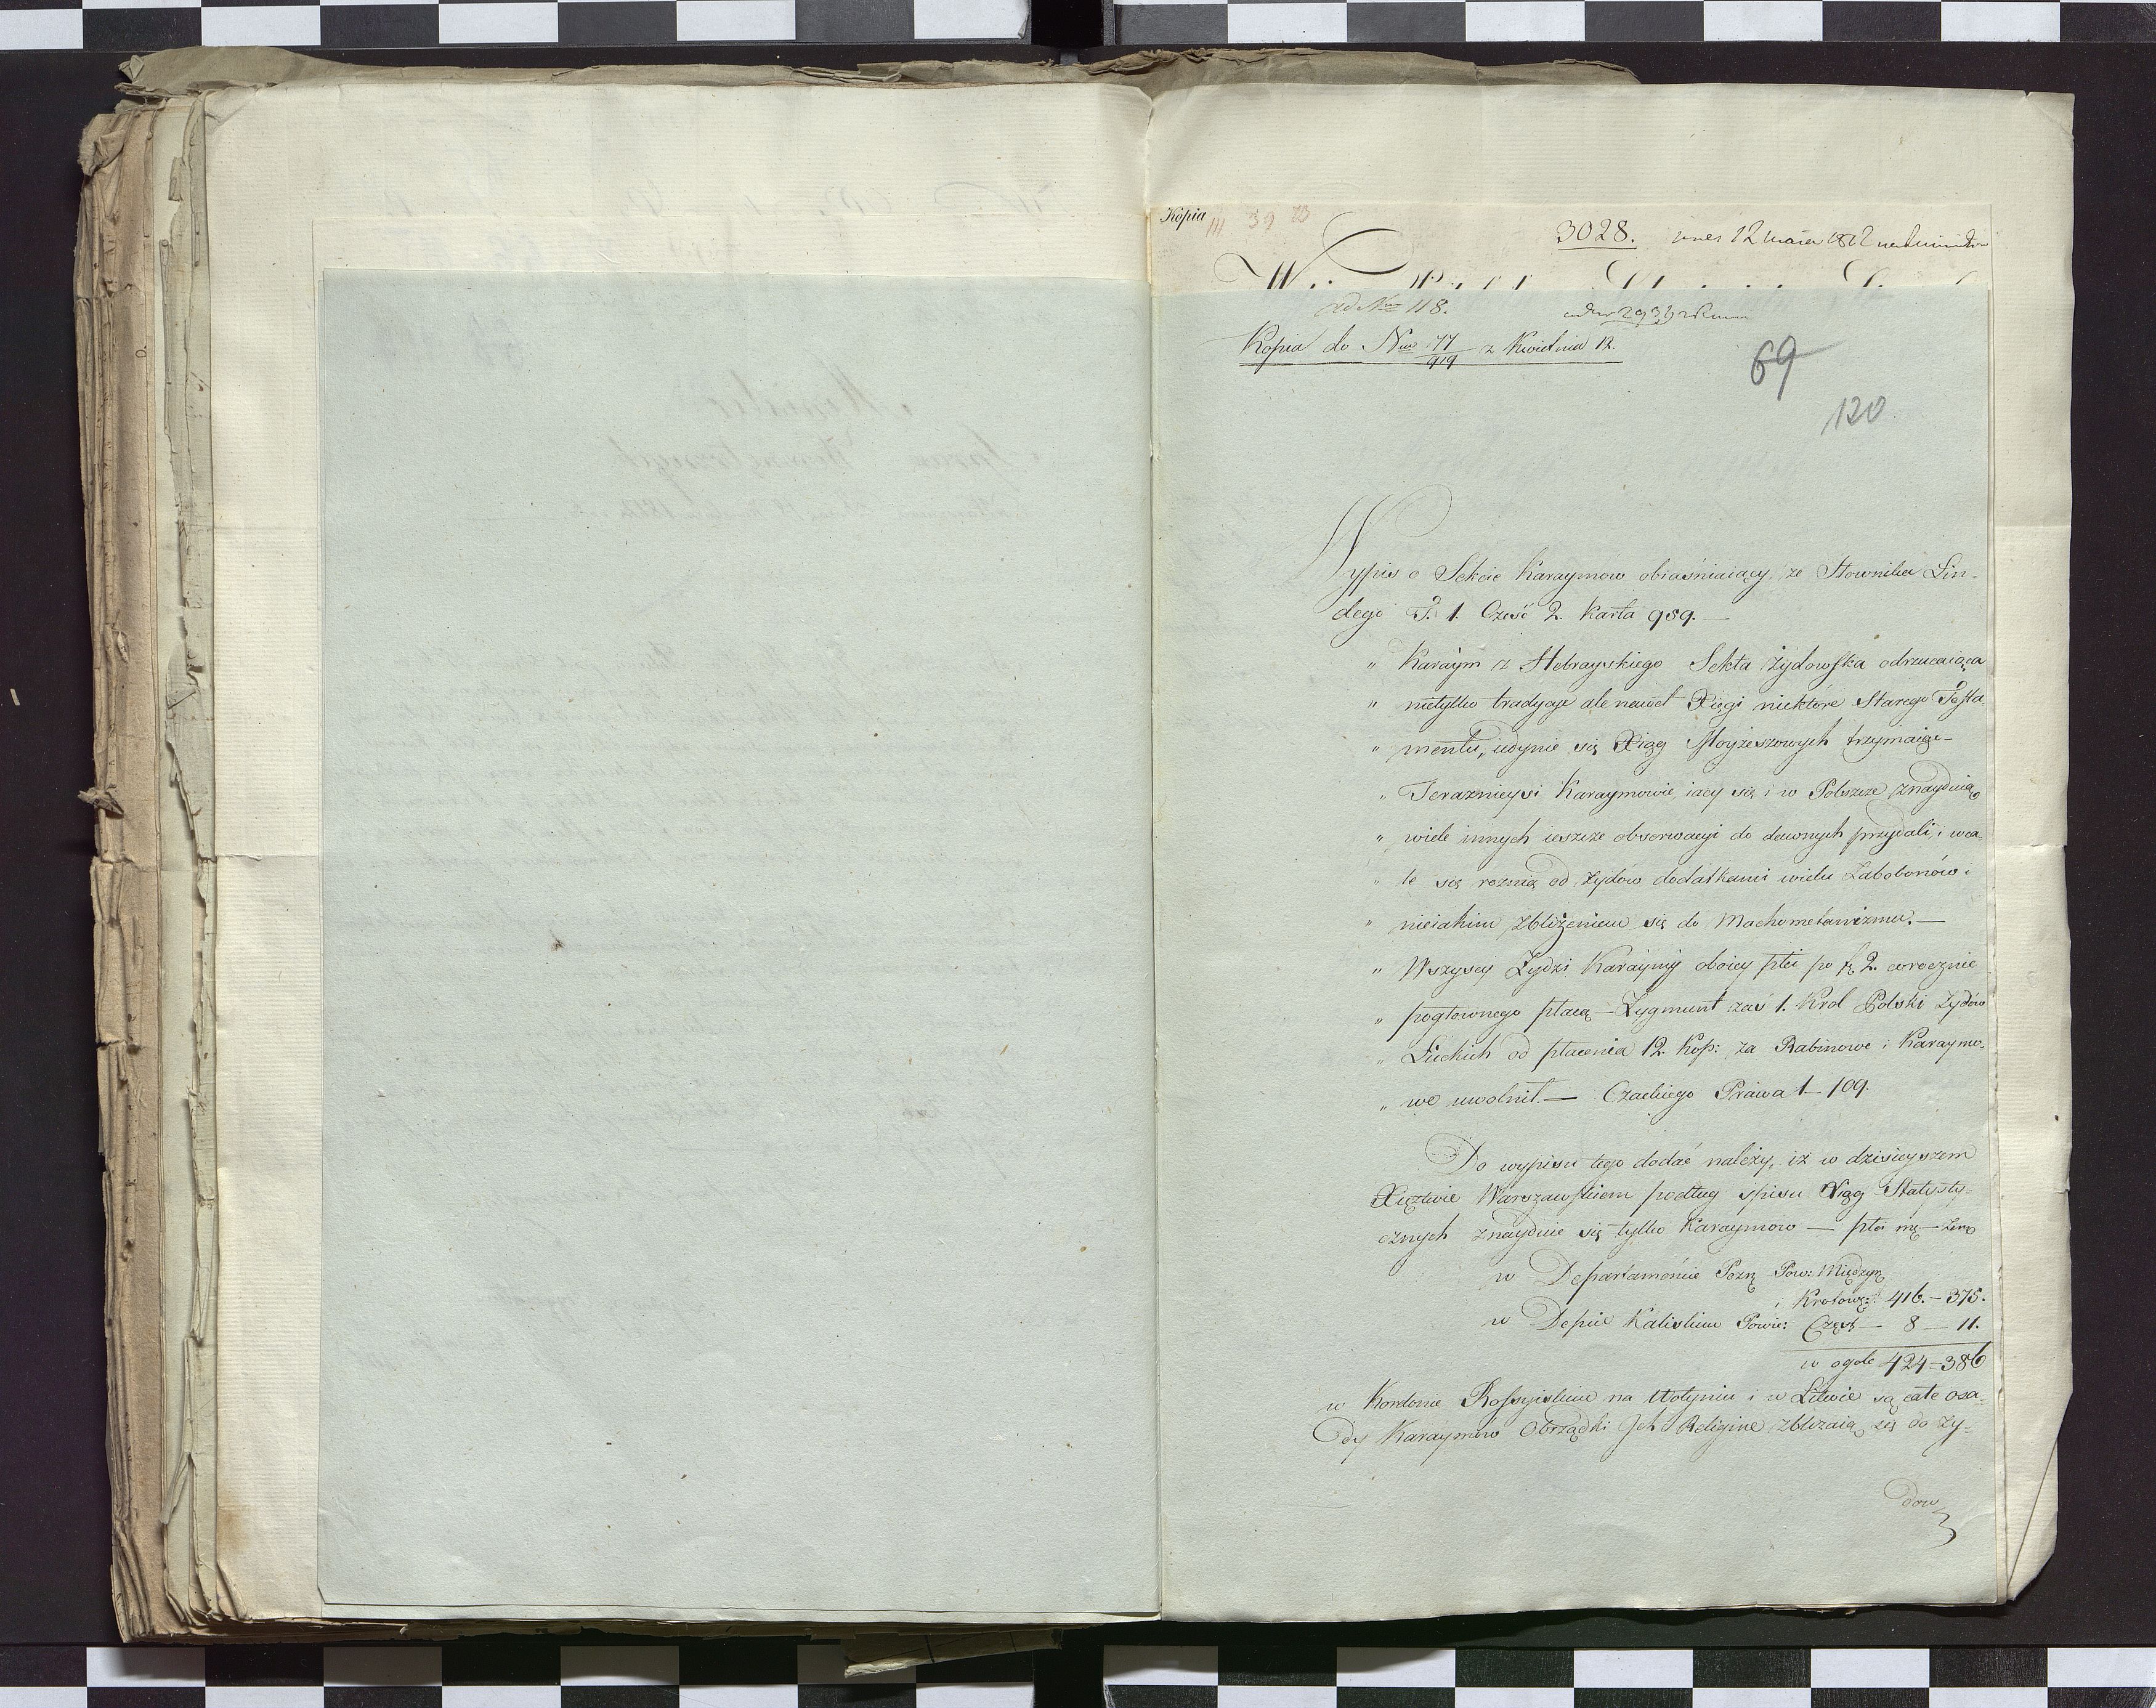 Kopia
III 39 B
3028.
ad Nro 118.
Kopia do Nro 77/919 z Kwietnia 12.
69
120
Wypis o Sekcie Karaymow obiaśniaiący, ze Słownika Lin-
dego T. 1. Cześć 2. Karta 959.—
" Karaym z Hebrayskiego Sekta żydowska odrzucaiąca
" nietylko tradycye ale nawet Xięgi niektóre Starego Testa
" mentu, iedynie się Xiąg Moyżeszowych trzymaiąc—
" Teraznieysi Karaymowie, iacy się i w Polszcze znayduią
" wiele innych ieszcze obserwacyi do dawnych przydali, i wca-
" le się roznią od Żydów dodatkami wielu Zabobonów i
" nieiakim zbliżeniem się do Machometanizmu.—
" Wszyscy Żydzi Karaymy oboiey płci po f 2. corocznie
" pogłownego płacą—Zygmunt zaś 1. Krol Polski Żydów
" Łuckich od płacenia 12. Kop: za Rabinowe i Karaymo-
" we uwolnił.— Czackiego Prawa 1—109.
Do wypisu tego dodać należy, iż w dzisieyszem
Xięztwie Warszawskiem podług spisu Xiąg Statysty-
cznych znayduie się tylko Karaymow — płci mę—żeń
w Departamencie Pozn Pow: Międzyrz
i Krotow: 416.—375.
w Depcie Kaliskim Powie: Częst— 8—11.
w ogole 424—386
w Kordonie Rossyiskim na Wołyniu i w Litwie są całe osa-
dy Karaymow Obrządki Jch Religine zbliżaią się do Ży-
dow